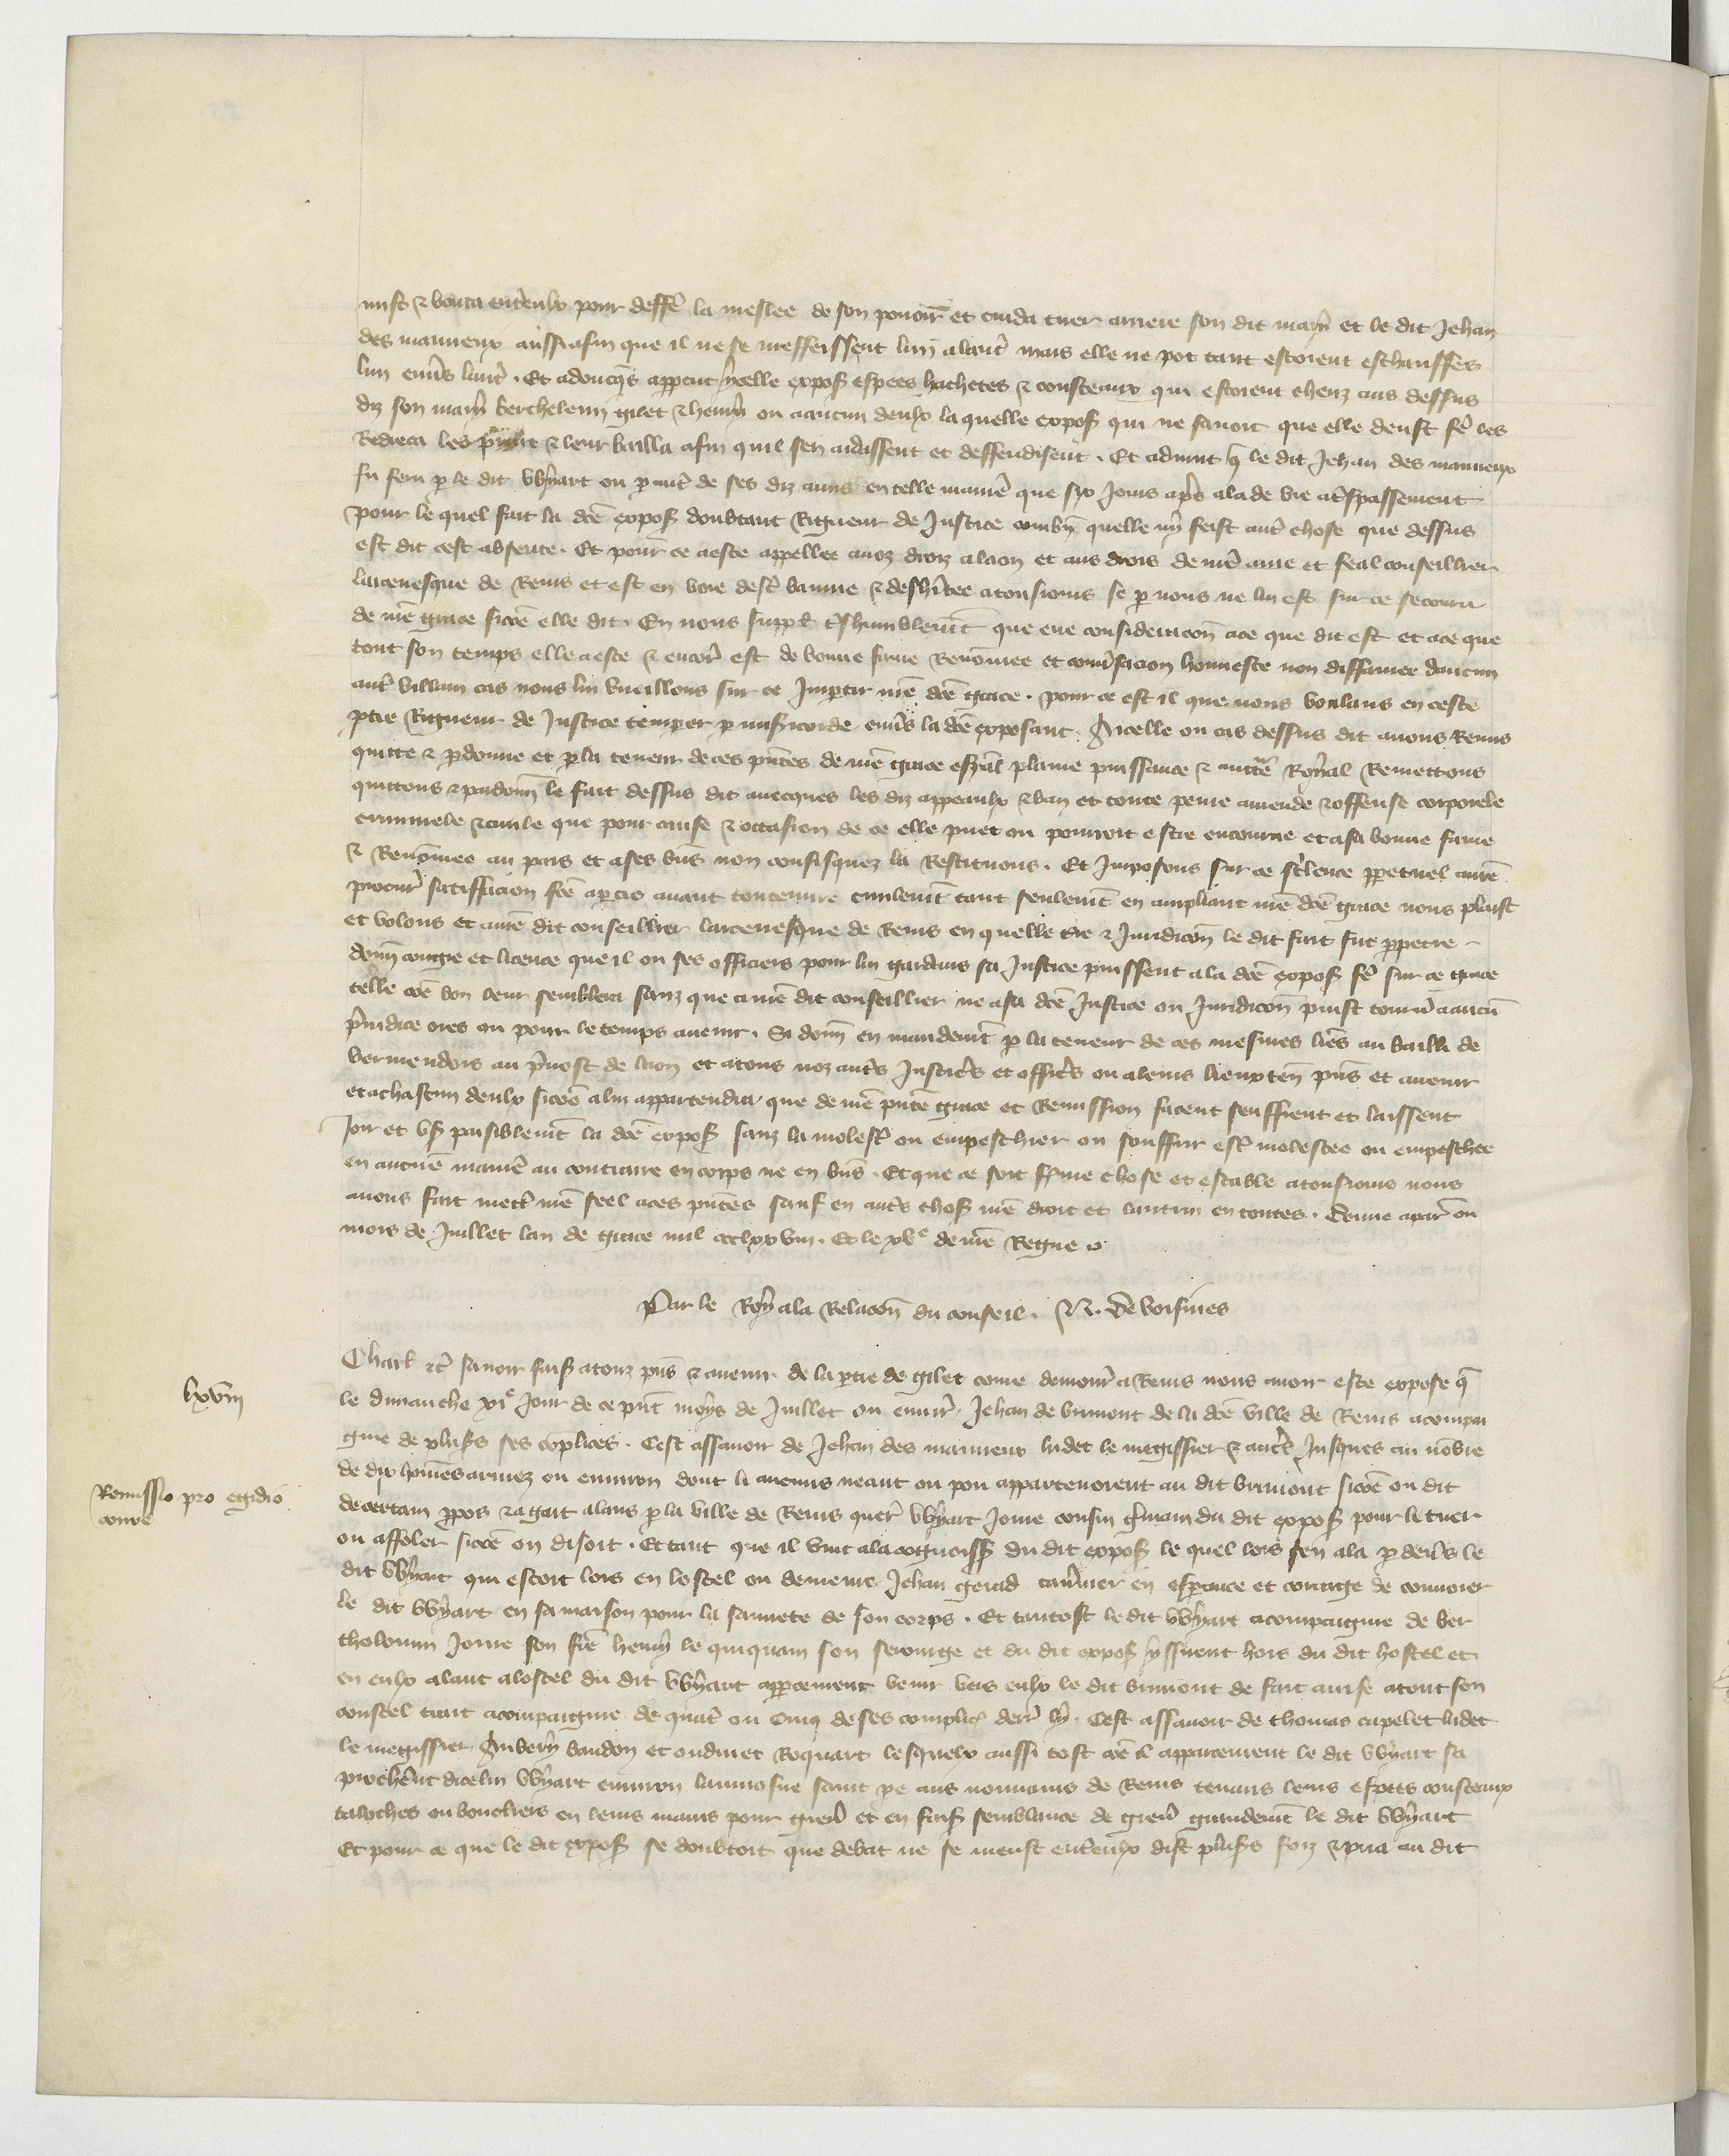 mist & bouta entreulx pour deffe la meslee de son pouoir et cuida tirer arriere son dit mary et le dit Jehan
des manieux aussi afin que il ne se meffeissent lun a lautre mais elle ne pot tant estoient eschauffes
lun enũs lautre . Et adoncqs apperceut ycelle expos espees hachetes & cousteaux qui estoient cheuz aus dessus
diz son mary berthelemi gilet & henry ou a aucun deulx la quelle expos qui ne sauoit que elle deust fe les
Redreca les & leur bailla afin quil sen aidassent et deffendisent . Et aduint q le dit Jehan des manieux
fu feru p le dit Wyart ou p autre de ses diz amis en telle maniere que six Jours apres ala de vie a trespassement
pour le quel fait la dce expos doubtant Rigueur de Justice combn quelle ny feist autre chose que dessus
est dit cest absente . Et pour ce a este appellee a noz droiz a laon et aus drois de nre ame et feal conseillier
larceuesque de Reins et est en voie destre bannie & desheritee a tousiours se p nous ne lui est sur ce secouru
de nre grace sicoe elle dit . En nous suppl tshumblemt que eue consideracion a ce que dit est et a ce que
tout son temps elle a este & encor est de bonne fame Renommee et conusacion honneste non diffamee daucun
autre villain cas nous lui vueillons sur ce Impartir nre dce grace . Pour ce est il que nous voulans en ceste
ptie Rigueur de Justice temperer p misericorde enũs la dce exposant . A icelle ou cas dessus dit auons Remis
quitte & pdonne et p la teneur de ces pntes de nre grace espal plaine puissance & auctte Royal Remettons
quittons & pardonn le fait dessus dit auecques les diz appeaulx & ban et toute peine amende & offense corporele
criminele & ciuile que pour cause & occasion de ce elle puet ou pourroit estre encourue et a sa bonne fame
& Renommee au pais et a ses bns non confisquez la Restituons . Et Imposons sur ce silence ppetuel a nre
procureur satiffacion fce a ptie auant toute euure ciuilemt tant seulemt en ampliant nre dce grace nous plaist
et volons et a nre dit conseillier larceuesque de Reins en quelle tre & Juridicon le dit fait fut ppetre
donn congie et licence que il ou ses officiers pour lui gardans sa Justice puissent a la dce expos fe sur ce grace
telle coe bon leur semblera sanz que a nre dit conseillier ne a sa dce Justice ou Juridicon puist tourner a aucun
preiudice ores ou pour le temps auenir . Si donn en mandemt p la teneur de ces mesmes lres au bailli de
vermendois au preuost de laon et a tous noz autres Justicers et officers ou a leurs lieuxten pns et auenir
et a chascun deulx sicoe a lui appartendra que de nre pnte grace et Remission facent seuffrent et laissent
Joir et vs paisiblemt la dce expos sanz la molestr ou empeschier ou souffrir estre molestee ou empeschee
en aucune maniere au contraire en corps ne en bns . Et que ce soit ferme chose et estable a tousiours nous
auons fait mettre nre seel a ces pntes sauf en autres chos nre droit et lautrui en toutes . Donne a par ou
mois de Juillet lan de grace mil ccclxxviii . Et le xve de nre Regne
Par le Roy a la Relacon du conseil . N . de voisines
lxviii
Charl &c sauoir fais a touz pns & auenir de la ptie de gilet come demour a Reins nous auoir este expose q
le dimanche xie Jour de ce pnt moys de Juillet ou enuiron Jehan de brimont de la dce ville de Reins acompai
gnie de plusrs ses coplices . Cest assauoir de Jehan des manieux ludet le megissier & autres Jusques au nobre
de dix homes armez ou enuiron dont li aucuns neant ou pou appartenoient au dit brimont sicoe on dit
Remissio pro egidio
come
de certain ppos & agait alans p la ville de Reins querir Wyart Jorne cousin germain du dit expos pour le tuer
ou affoler sicoe on disoit . Et tant que il vint a la cognoiss du dit expos le quel lors sen ala p deuers le
dit Wyart qui estoit lors en lostel ou demeure Jehan gerard tauernier en esperance et courage de conuoier
le dit Wyart en sa maison pour la sauuete de son corps . Et tantost le dit Wyart acompaignie de ber
tholomin Jorne son frere henry le quiquain son serourge et du dit expos yssirent hors du dit hostel et
en eulx alant a lostel du dit Wyart apperceurent venir vers eulx le dit brimont de fait auise a tout son
coustel trait acompaignie de quatre ou cinq de ses complic derr ly . Cest assauoir de thomas cupelet ludet
le megissier Aubery baudon et oudinet Roquart lesquelx aussi tost coe il apperceurent le dit Wyart sa
procherent dicelui Wyart enuiron laumosne saint pe aus nonnains de Reins tenans leurs espees cousteaux
taloches ou boucliers en leurs mains pour greuer et en fais semblance de greuer grandemt le dit Wyart
Et pour ce que le dit expos se doubtoit que debat ne se meust entreulx dist plusrs foiz & pria au dit